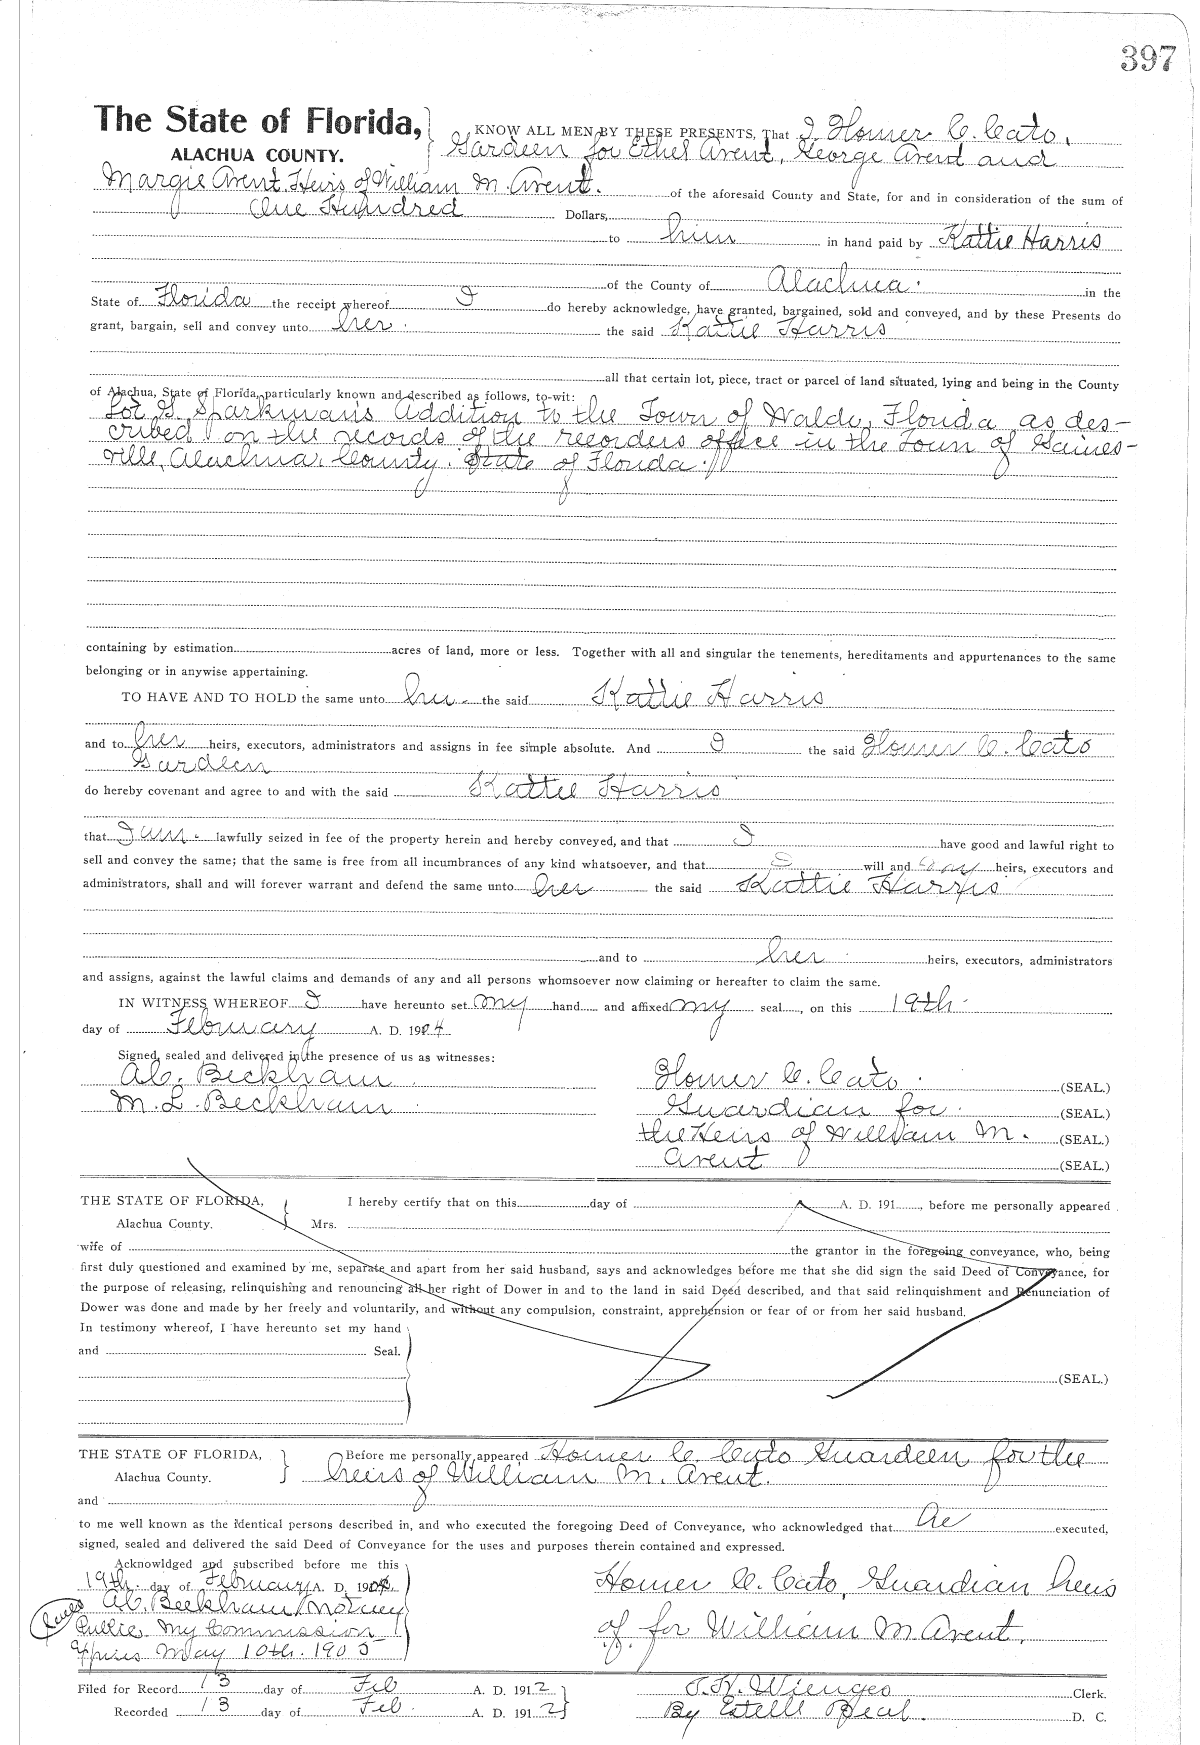 397
The State of Florida, KNOW ALL MEN BY THESE PRESENTS, That I Homer C. Cato,
ALACHUA COUNTY. Gardeen for Ethel Avent, George Avent and
Margie Avent Heirs of William M. Avent. of the aforesaid County and State, for and in consideration of the sum of
One Hundred Dollars,
to him in hand paid by Kattie Harris
of the County of Alachua. in the
State of Florida the receipt whereof I do hereby acknowledge, have granted, bargained, sold and conveyed, and by these Presents do
grant, bargain, sell and convey unto her. the said Kattie Harris
all that certain lot, piece, tract or parcel of land situated, lying and being in the County
of Alachua, State of Florida, particularly known and described as follows, to-wit:
Sparkman's Addition to the Town of Waldo, Florida as des-
cribed on the records of the recorders office in the Town of Gaines-
ville, Alachua. County. State of Florida.
containing by estimation acres of land, more or less. Together with all and singular the tenements, hereditaments and appurtenances to the same
belonging or in anywise appertaining.
TO HAVE AND TO HOLD the same unto her. the said Kattie Harris
and to her heirs, executors, administrators and assigns in fee simple absolute. And I the said Homer C. Cato
Gardeen
do hereby covenant and agree to and with the said Kattie Harris
that I am. lawfully seized in fee of the property herein and hereby conveyed, and that I have good and lawful right to
sell and convey the same; that the same is free from all incumbrances of any kind whatsoever, and that I will and my heirs, executors and
administrators, shall and will forever warrant and defend the same unto her the said Kattie Harris
and to her heirs, executors, administrators
and assigns, against the lawful claims and demands of any and all persons whomsoever now claiming or hereafter to claim the same.
IN WITNESS WHEREOF I have hereunto set my hand and affixed my seal, on this 19th.
day of February A. D. 1904
Signed, sealed and delivered in the presence of us as witnesses:
A.C. Beckham Homer C. Cato. (SEAL.)
M. L. Beckham Guardian for. (SEAL.)
the Heirs of William M. (SEAL.)
Avent (SEAL.)
THE STATE OF FLORIDA, I hereby certify that on this day of A. D. 191 , before me personally appeared
Alachua County. Mrs.
wife of the grantor in the foregoing conveyance, who, being
first duly questioned and examined by me, separate and apart from her said husband, says and acknowledges before me that she did sign the said Deed of Conveyance, for
the purpose of releasing, relinquishing and renouncing all her right of Dower in and to the land in said Deed described, and that said relinquishment and Renunciation of
Dower was done and made by her freely and voluntarily, and without any compulsion, constraint, apprehension or fear of or from her said husband.
In testimony whereof, I have hereunto set my hand
and Seal.
(SEAL.)
THE STATE OF FLORIDA, Before me personally appeared Homer C. Cato Guardeen for the
Alachua County. heirs of William M. Avent.
and
to me well known as the identical persons described in, and who executed the foregoing Deed of Conveyance, who acknowledged that he executed,
signed, sealed and delivered the said Deed of Conveyance for the uses and purposes therein contained and expressed.
Acknowldged and subscribed before me this
19th. day of February A. D. 1904. Homer C. Cato, Guardian heirs
A.C. Beckham Notary
Public. My Commission of for William M Avent.
Expires May 10th. 1905
Filed for Record 13 day of Feb A. D. 1912 S. H. Wienges Clerk.
Recorded 13 day of Feb. A. D. 1912 By Estelle D. C.